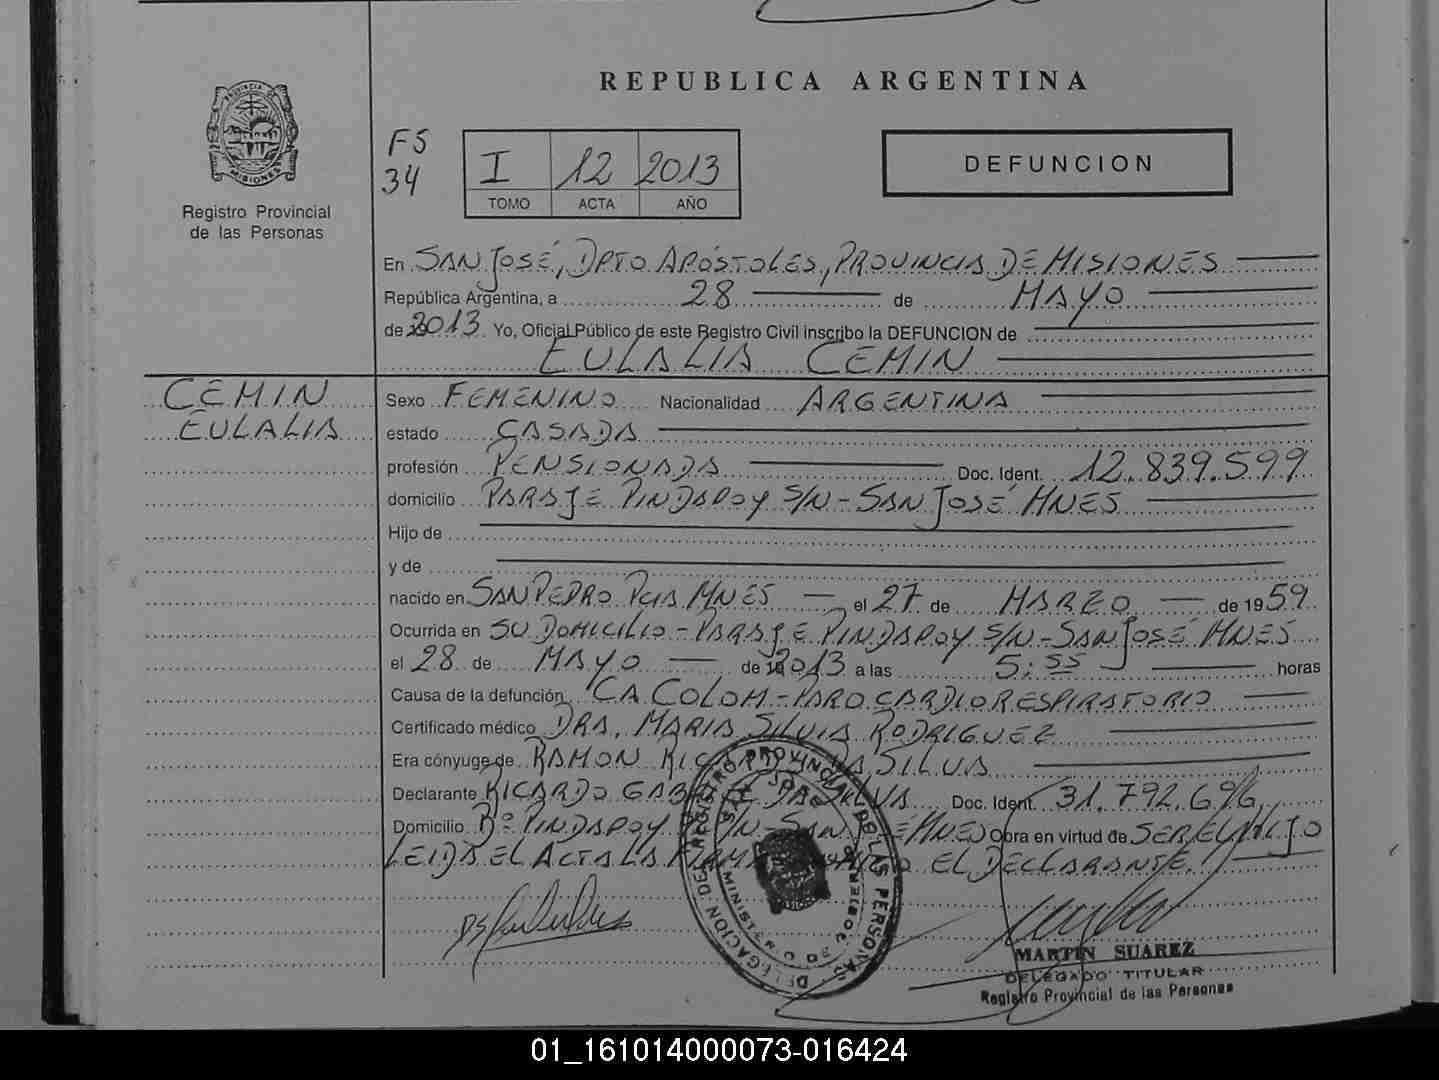 REPUBLICA ARGENTINA
PROVINCIA DE
MISIONES
Registro Provincial
de las Personas
FS
34
I 12 2013
TOMO ACTA AÑO
DEFUNCION
En SAN JOSÉ, DPTO APÓSTOLES, PROVINCIA DE MISIONES
República Argentina, a 28 de MAYO
de 2013. Yo, Oficial Público de este Registro Civil inscribo la DEFUNCION de
EULALIA CEMIN
CEMIN
EULALIA
Sexo FEMENINO Nacionalidad ARGENTINA
estado CASADA
profesión PENSIONADA Doc. Ident. 12.839.599
domicilio PARAJE PINDAPOY S/N - SAN JOSÉ MNES
Hijo de
y de
nacido en SAN PEDRO PCIA MNES el 27 de MARZO de 1959
Ocurrida en SU DOMICILIO - PARAJE PINDAPOY S/N - SAN JOSÉ MNES
el 28 de MAYO de 2013 a las 5:55 horas
Causa de la defunción CA COLOM - PARO CARDIORESPIRATORIO
Certificado médico DRA. MARIA SILVIA RODRIGUEZ
Era cónyuge de RAMON DA SILVA
Declarante RICARDO DA SILVA Doc. Ident. 31.792.696
Domicilio Bº PINDAPOY S/N - SAN JOSÉ MNES Obra en virtud de SER EL HIJO
LEIDA EL ACTA LA FIRMA EL DECLARANTE.
DELEGACION DEL REGISTRO PROVINCIAL DE LAS PERSONAS
SAN JOSE
MINISTERIO DE GOBIERNO
MARTIN SUAREZ
DELEGADO TITULAR
Registro Provincial de las Personas
01_161014000073-016424